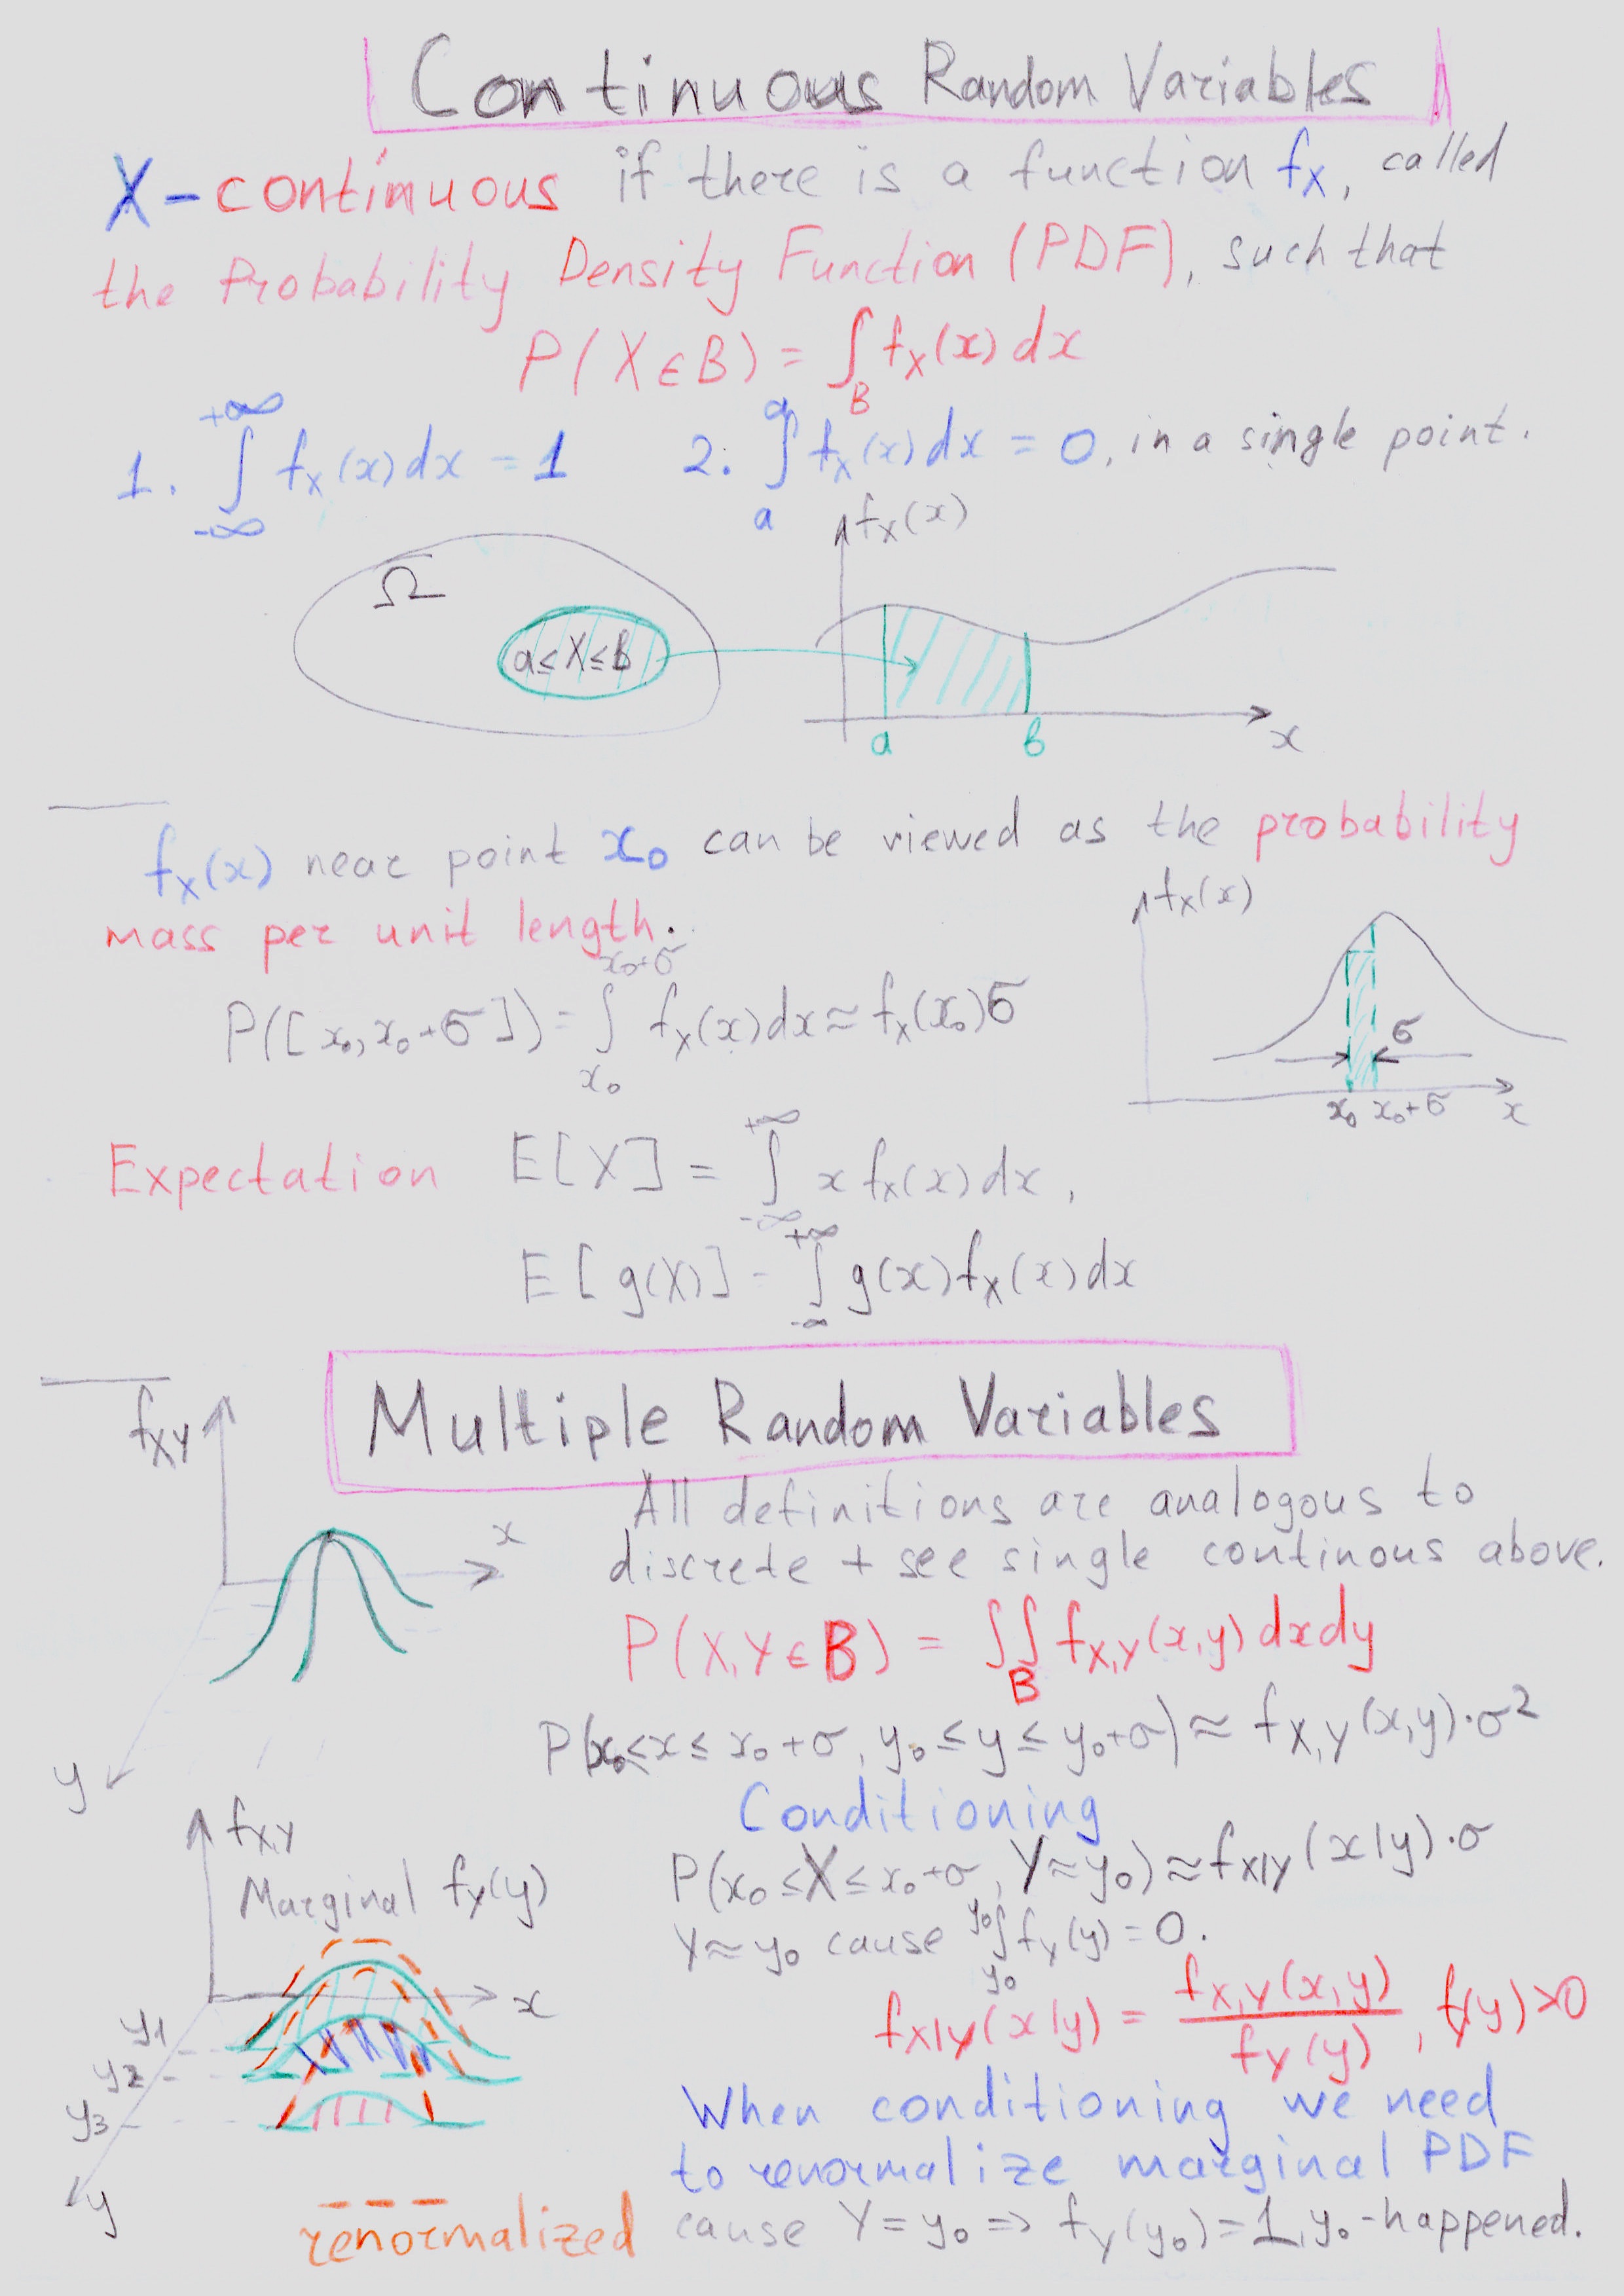 Continuous Random Variables
X - continuous if there is a function fₓ, called
the Probability Density Function (PDF), such that
P(X ∈ B) = ∫_B fₓ(x) dx
1. ∫_{-∞}^{+∞} fₓ(x) dx = 1   2. ∫_a^a fₓ(x) dx = 0, in a single point.
fₓ(x)
Ω
a ≤ X ≤ B
a b x
fₓ(x) near point x₀ can be viewed as the probability
mass per unit length.
fₓ(x)
P([x₀, x₀+σ]) = ∫_{x₀}^{x₀+σ} fₓ(x) dx ≈ fₓ(x₀)σ
σ
x₀ x₀+σ x
Expectation E[X] = ∫_{-∞}^{+∞} x fₓ(x) dx,
E[g(X)] = ∫_{-∞}^{+∞} g(x) fₓ(x) dx
Multiple Random Variables
f_{XY}
x
y
All definitions are analogous to
discrete + see single continous above.
P(X,Y ∈ B) = ∫∫_B f_{X,Y}(x,y) dx dy
P(x₀ ≤ x ≤ x₀+σ, y₀ ≤ y ≤ y₀+σ) ≈ f_{X,Y}(x,y)·σ²
Conditioning
P(x₀ ≤ X ≤ x₀+σ, Y ≈ y₀) ≈ f_{X|Y}(x|y)·σ
Y ≈ y₀ cause ∫_{y₀}^{y₀} f_Y(y) = 0.
f_{X|Y}(x|y) = f_{X,Y}(x,y) / f_Y(y), f_Y(y) > 0
When conditioning we need
to renormalize marginal PDF
cause Y = y₀ => f_Y(y₀) = 1, y₀ - happened.
f_{X,Y}
Marginal f_Y(y)
x
y₁
y₂
y₃
y
renormalized